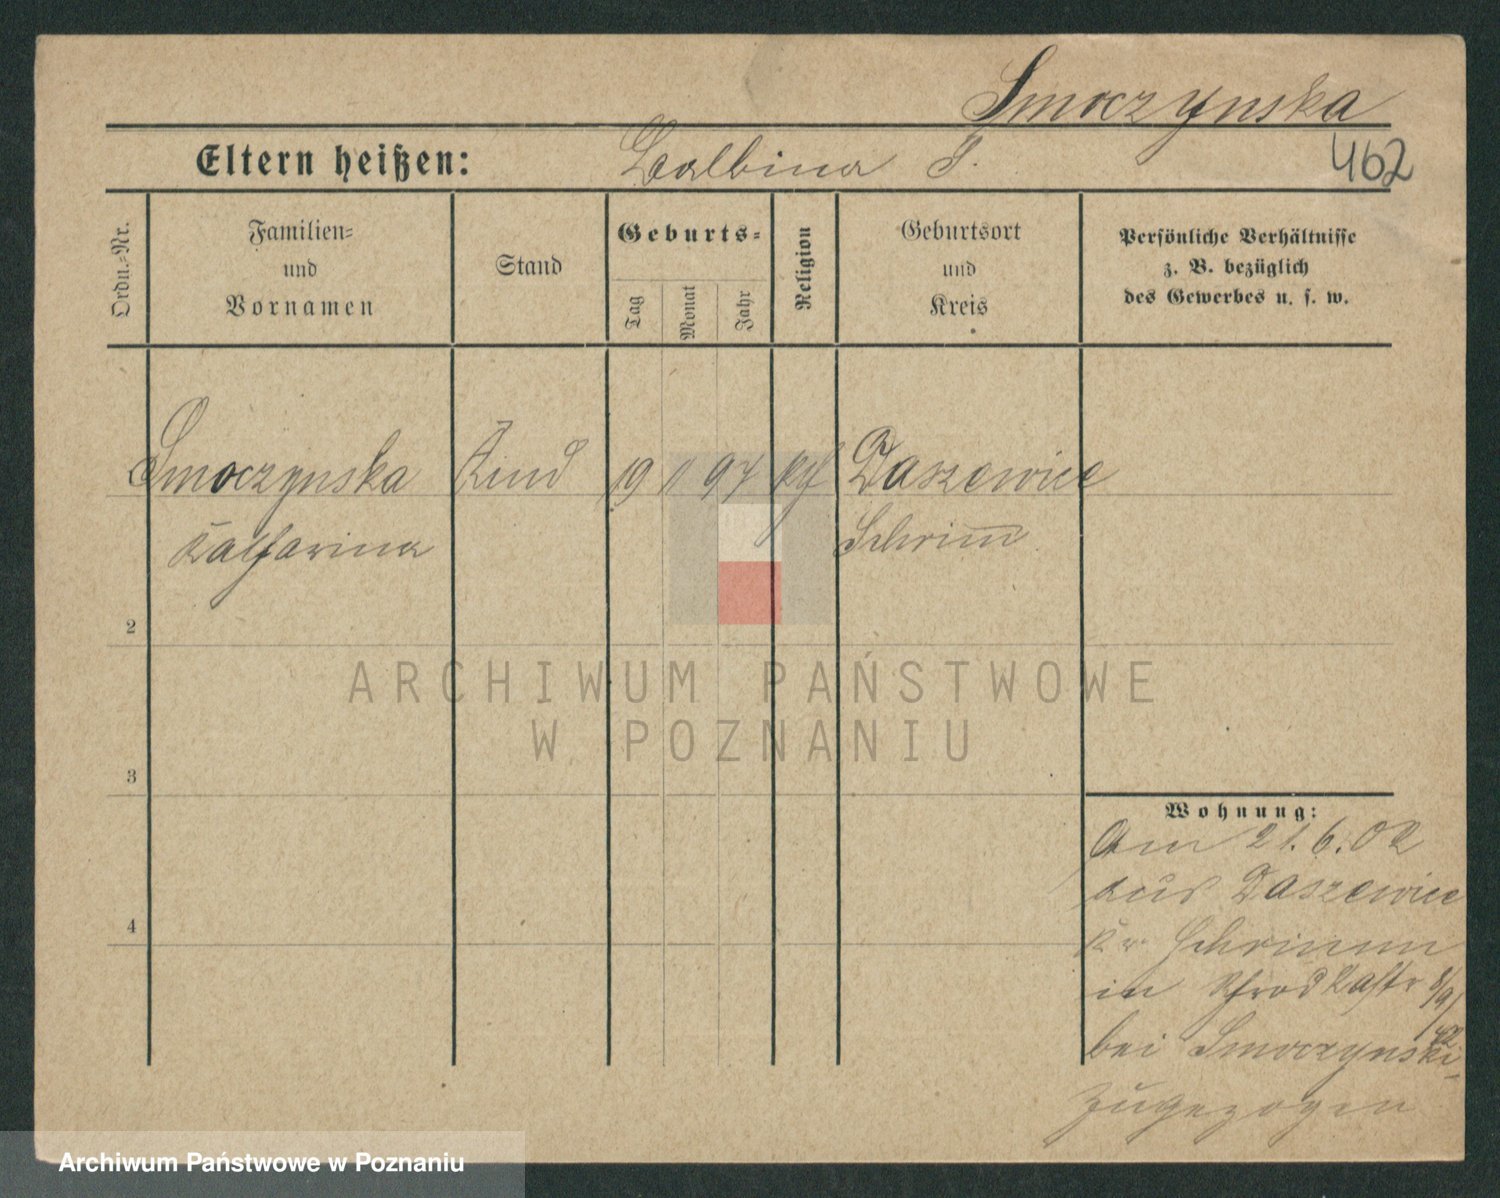 Smoczynska
Eltern heißen: Balbina S.
462
Ordn.-Nr.
Familien-
und
Vornamen
Stand
Geburts-
Tag
Monat
Jahr
Religion
Geburtsort
und
Kreis
Persönliche Verhältnisse
z. B. bezüglich
des Gewerbes u. s. w.
Smoczynska Kind 19 11 94 kth Daszewice
Katharina Schrim̅
2
3
4
ARCHIWUM PAŃSTWOWE
W POZNANIU
Wohnung:
Am 21.6.02
aus Daszewice
Kr Schrimm
in 8/9
bei Smoczynski
zugezogen
Archiwum Państwowe w Poznaniu